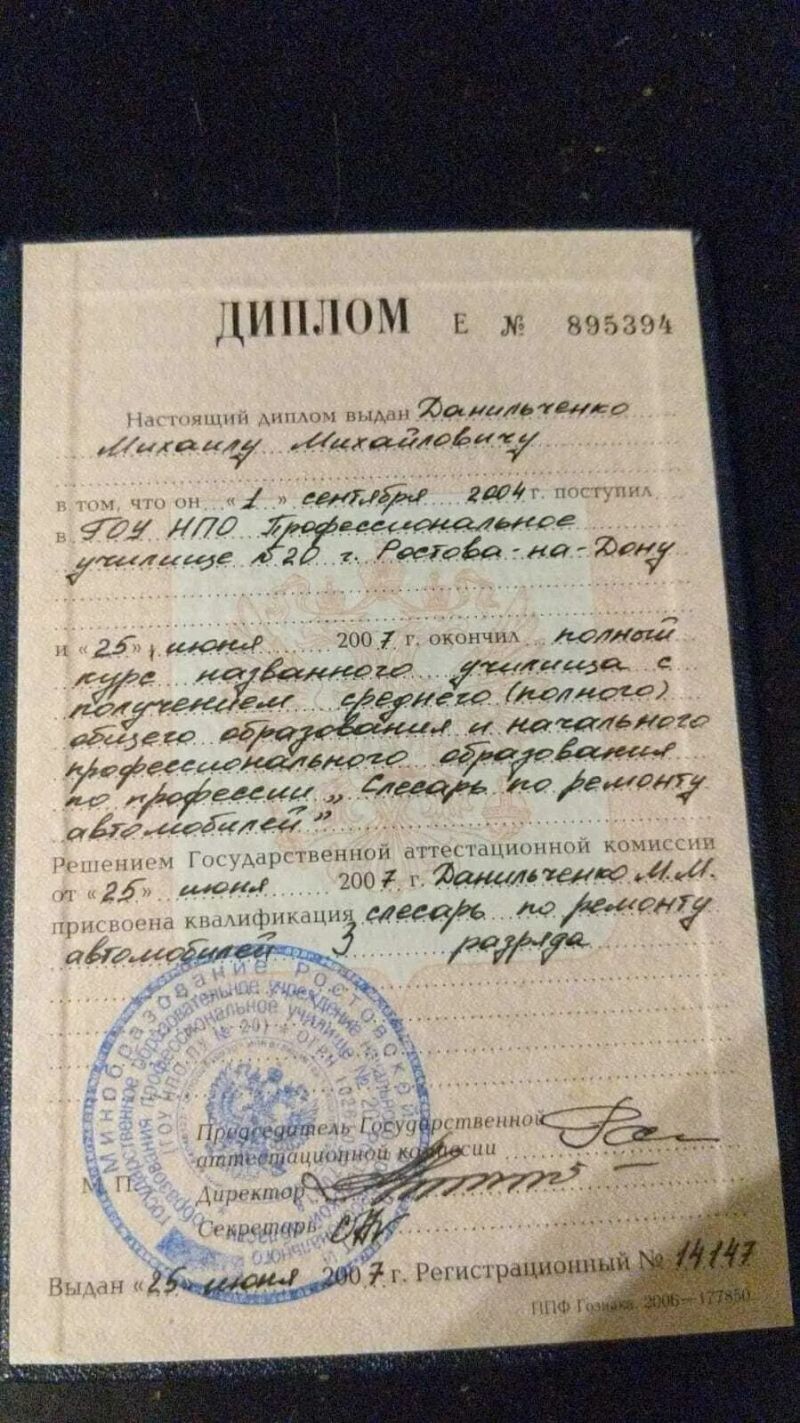 ДИПЛОМ Е № 895394
Настоящий диплом выдан Данильченко
Михаилу Михайловичу
в том, что он «1» сентября 2004 г. поступил
в ГОУ НПО Профессиональное
училище №20 г. Ростова-на-Дону
и «25» июня 2007 г. окончил полный
курс названного училища с
получением среднего (полного)
общего образования и начального
профессионального образования
по профессии „Слесарь по ремонту
автомобилей”
Решением Государственной аттестационной комиссии
от «25» июня 2007 г. Данильченко М.М.
присвоена квалификация слесарь по ремонту
автомобилей 3 разряда
Минобразование Ростовской
Государственное образовательное учреждение начального
образования профессиональное училище №
(ГОУ НПО ПУ № 20) * ОГРН
Председатель Государственной
аттестационной комиссии
М. П.
Директор
Секретарь
Выдан «25» июня 2007 г. Регистрационный № 14147
ППФ Гознака. 2006—177850.